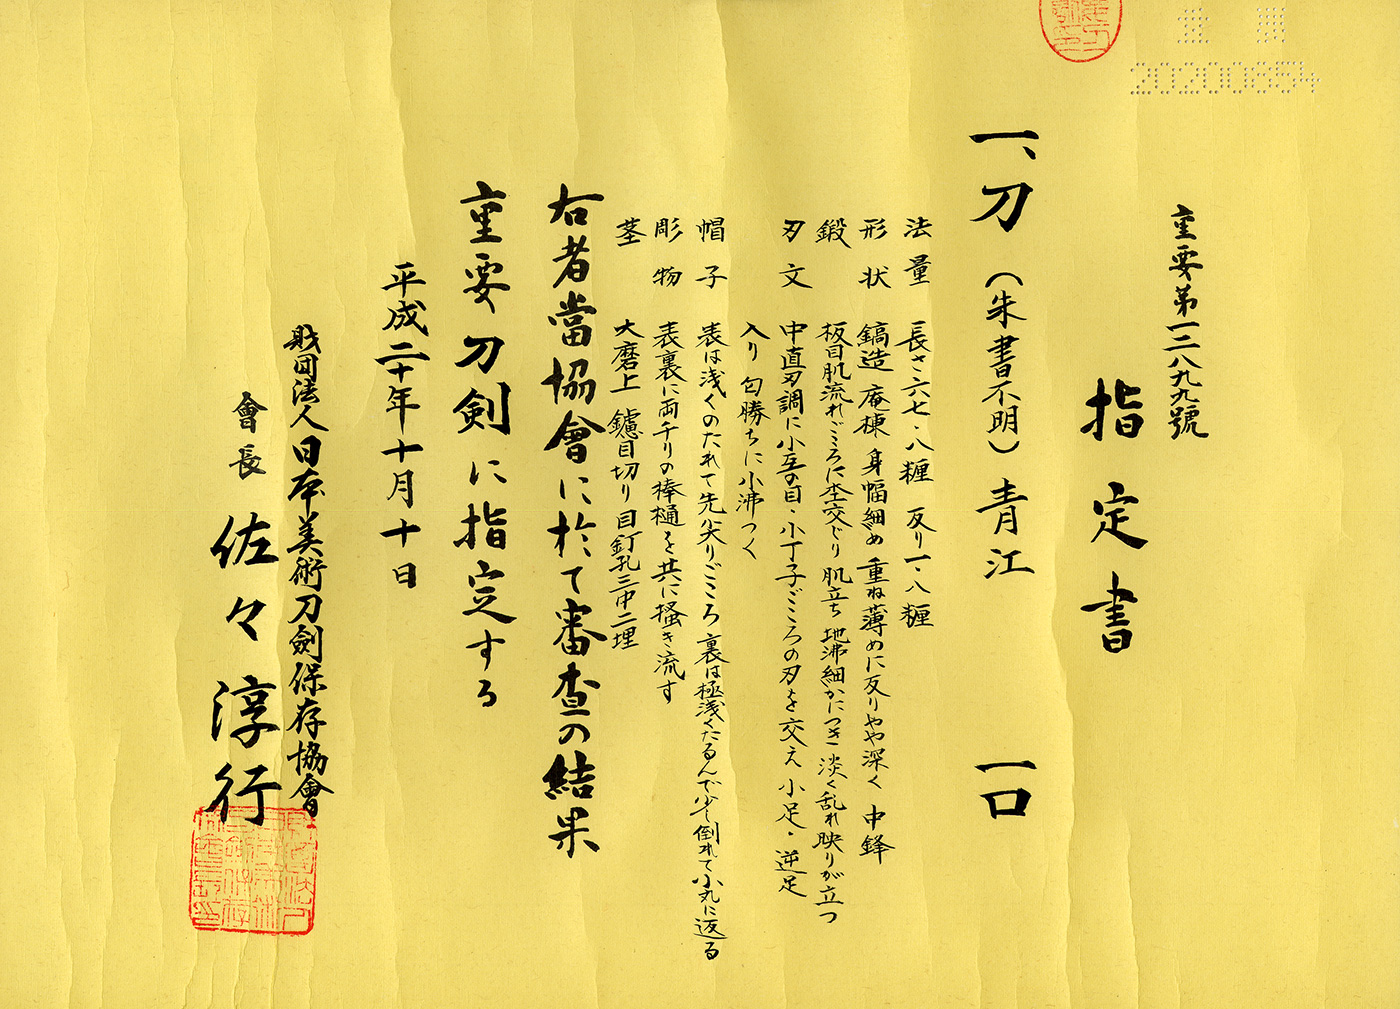 20200854
重要第一二八九九號
指定書
一、刀（朱書不明）青江 一口
法量 長さ六七・八糎 反り一・八糎
形状 鎬造 庵棟 身幅細め 重ね薄めに反りやや深く 中鋒
鍛 板目肌流れごころに杢交じり 肌立ち 地沸細かにつき 淡く乱れ映りが立つ
刃文 中直刃調に小互の目・小丁子ごころの刃を交え 小足・逆足
入り 匂勝ちに小沸つく
帽子 表は浅くのたれて先尖りごころ 裏は極浅くたるんで少し倒れて小丸に返る
彫物 表裏に両チリの棒樋を共に掻き流す
茎 大磨上 鑢目切り 目釘孔三中二埋
右者當協會に於て審査の結果
重要刀剣に指定する
平成二十年十月十日
財団法人日本美術刀劍保存協會
會長 佐々淳行